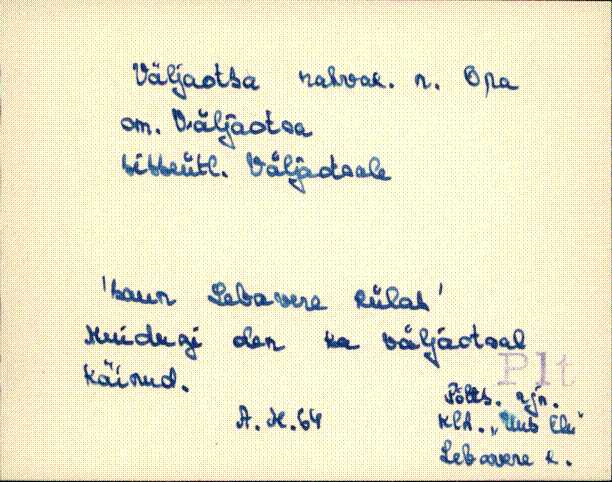 Väljaotsa rahvak. n. Opa
om. Väljaotsa
sisseütl. Väljaotsale
'saun Lebavere külas'
Muidugi olen ka väljaotsal
käinud.
Plt
A. M. 64
Põlts. rjn.
Klh. „Uus Elu"
Lebavere k.